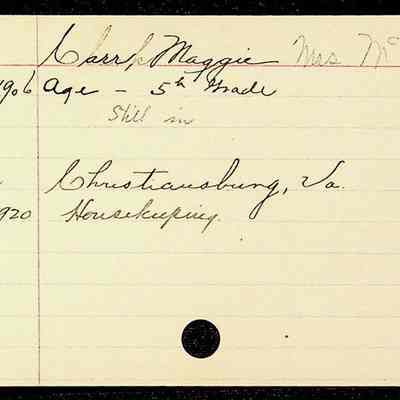 Carr, Maggie Mrs Mc
1906 Age - 5th Grade
Still in
Christiansburg, Va.
920 Housekeeping.